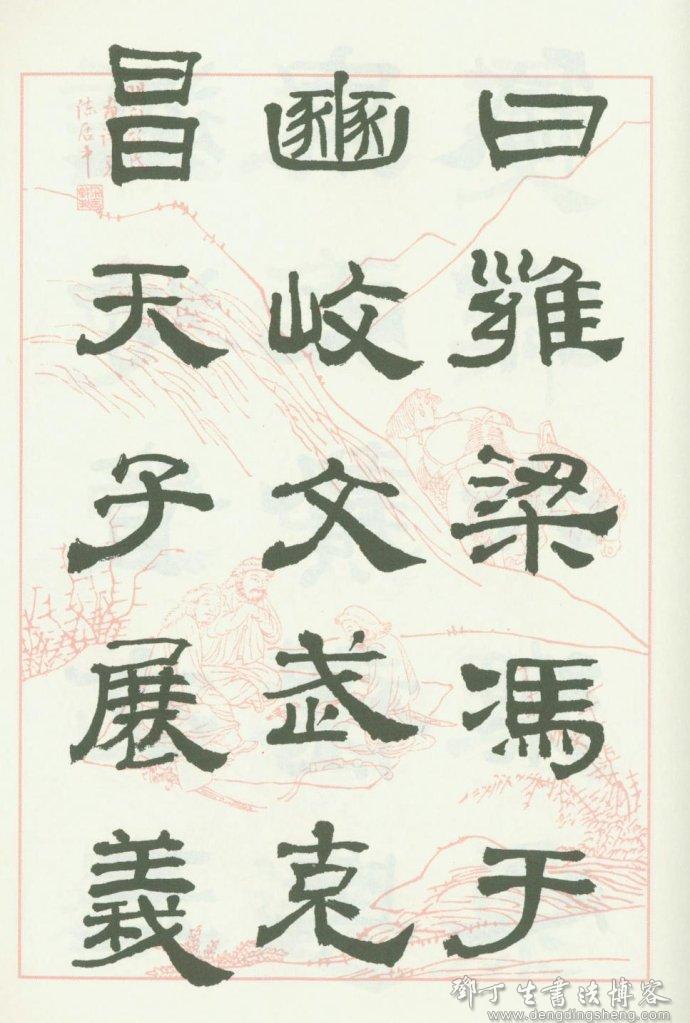 曰雍梁馮于
豳岐文武克
昌天子展義
鄧丁生書法博客
www.dengdingsheng.com